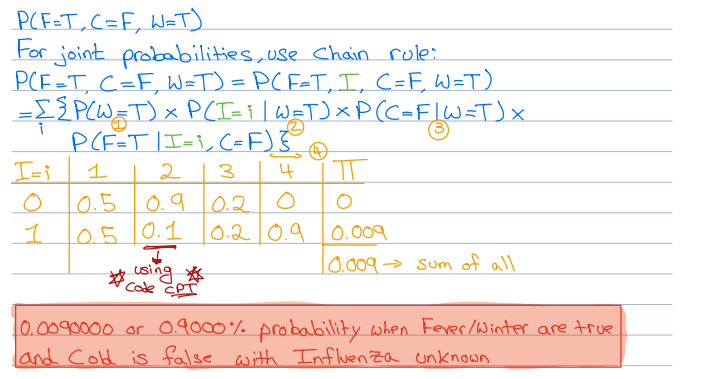 P(F=T, C=F, W=T)
For joint probabilities, use Chain rule:
P(F=T, C=F, W=T) = P(F=T, I, C=F, W=T)
=Σ{P(W=T) × P(I=i | W=T) × P(C=F|W=T) ×
i ① ② ③
P(F=T | I=i, C=F)}
④
I=i 1 2 3 4 Π
0 0.5 0.9 0.2 0 0
1 0.5 0.1 0.2 0.9 0.009
0.009 → sum of all
* using *
Code CPT
0.0090000 or 0.9000% probability when Fever/Winter are true
and Cold is false with Influenza unknown